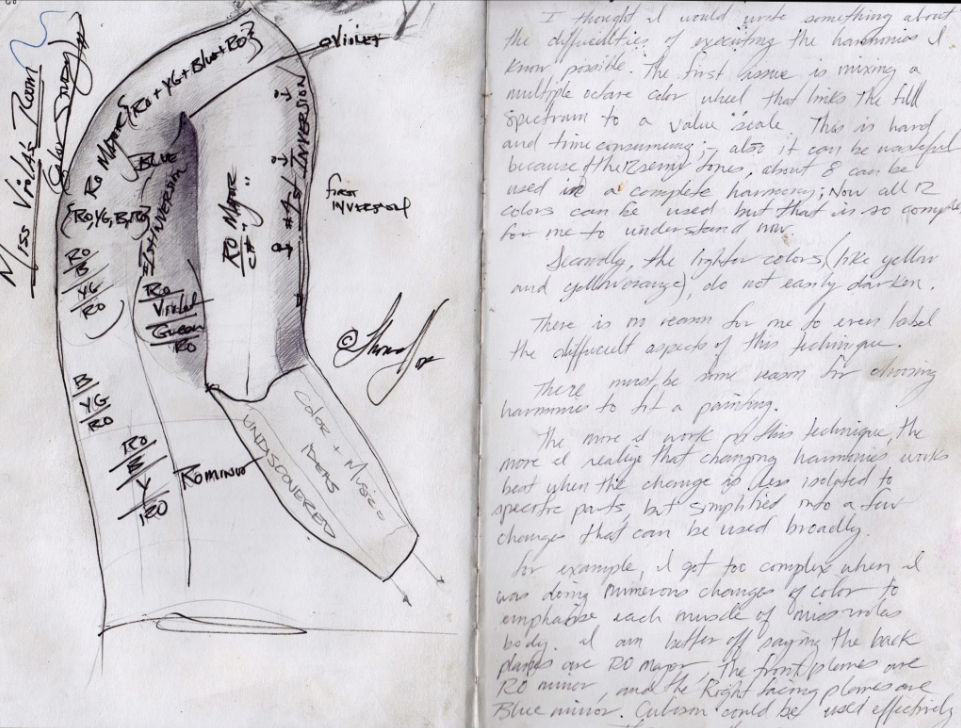 Miss Viola's Room
Color Study
Violet
{RO + YG + Blue + RO}
RO Major
Blue
{RO, YG, B, RO}
2nd Inversion
RO
B
YG
RO
RO
Violet
Green
RO
RO Major
C#
Inversion
First
Inversion
B
YG
RO
RO
B
Y
RO
RO minor
Color + Music
Ideas
Undiscovered
©
I thought I would write something about
the difficulties of executing the harmonies I
know possible. The first issue is mixing a
multiple octave color wheel that links the full
spectrum to a value scale. This is hard
and time consuming; also it can be wasteful
because of the 12 semi tones, about 8 can be
used in a complete harmony; Now all 12
colors can be used but that is so complex
for me to understand now.
Secondly, the lighter colors, (like yellow
and yellow orange), do not easily darken.
There is no reason for me to even label
the difficult aspects of this technique.
There must be some reason for choosing
harmonies to fit a painting.
The more I work on this technique, the
more I realize that changing harmonies works
best when the change is less isolated to
specific parts, but simplified into a few
changes that can be used broadly.
For example, I got too complex when I
was doing numerous changes of color to
emphasize each muscle of miss violas
body. I am better off saying the back
planes are RO major, The front planes are
RO minor, and the Right facing planes are
Blue minor. Cubism could be used effectively